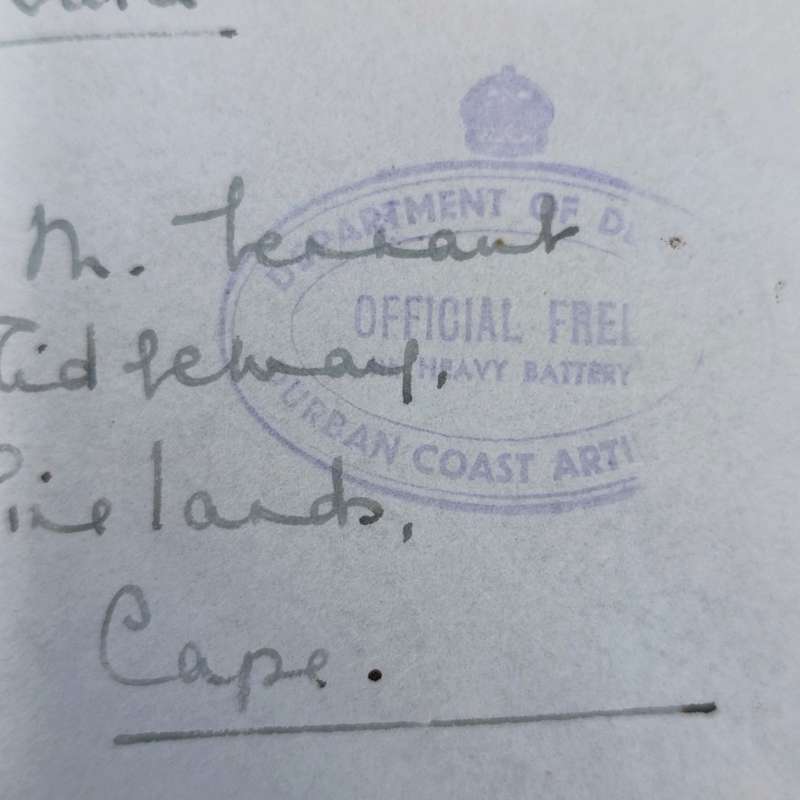 M. Tennant
Ridgeway,
Pinelands,
Cape.
DEPARTMENT OF DE
OFFICIAL FREE
HEAVY BATTERY
DURBAN COAST ARTI